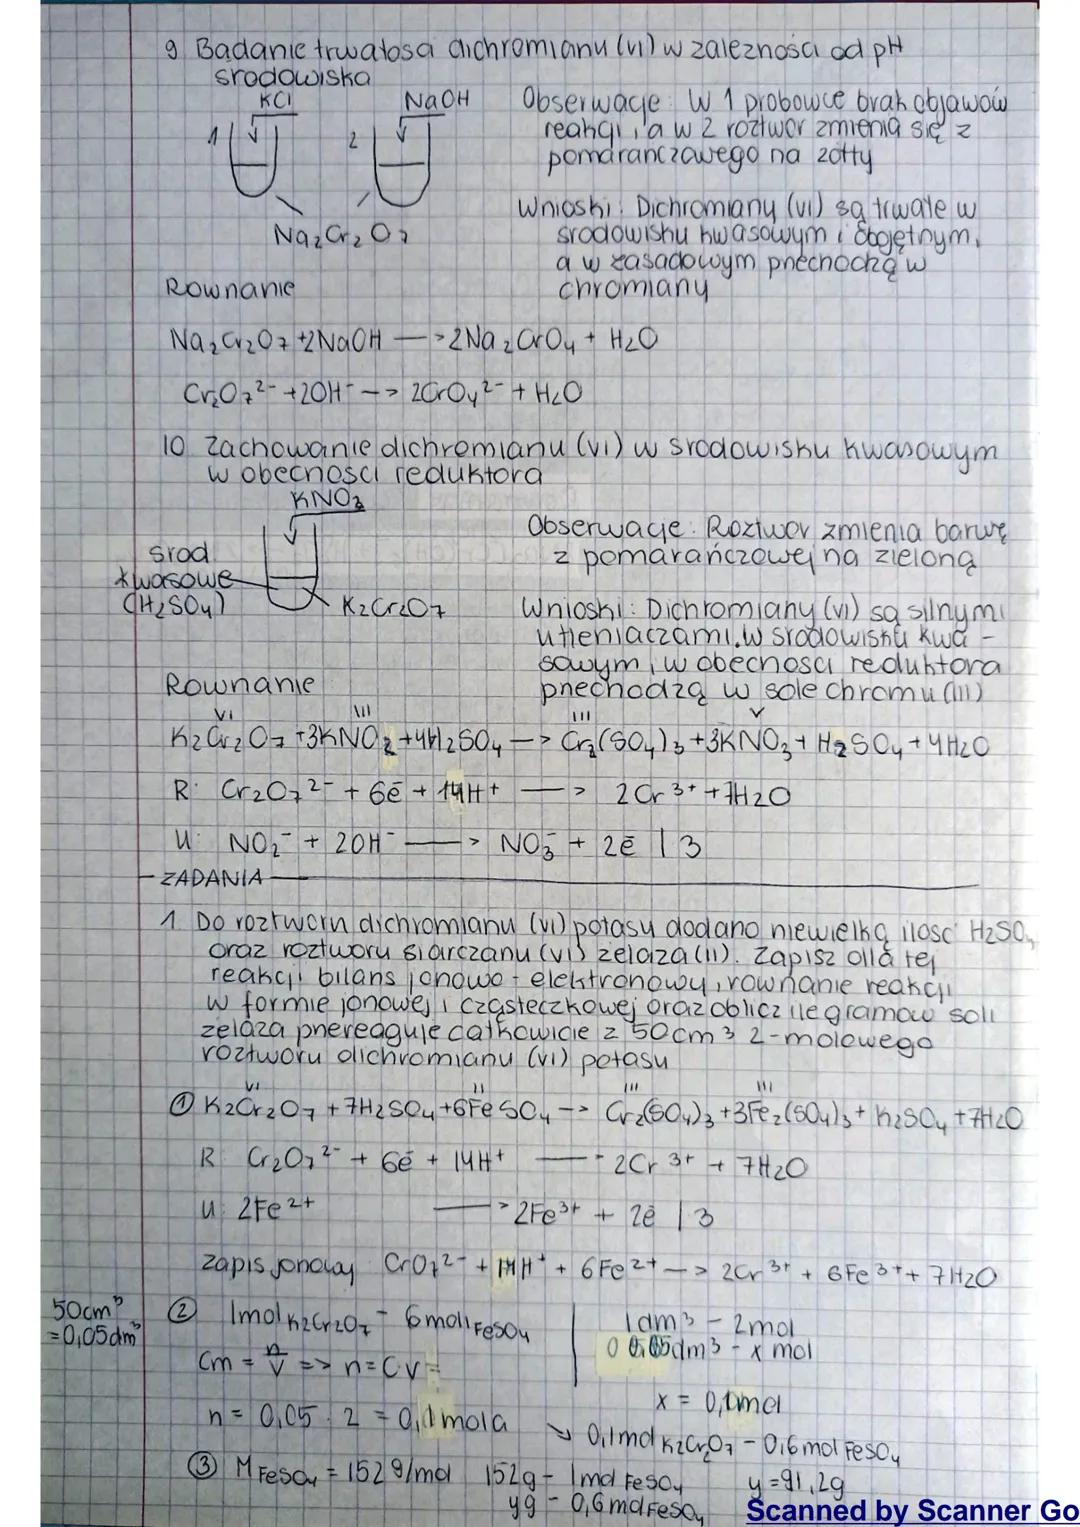 9 Badanie trwałosci dichromianu (VI) w zależności od pH
środowiska
KCl
NaOH
1
2
Na2Cr2O7
Obserwacje: W 1 probówce brak objawów
reakcji, a w 2 roztwór zmienia się z
pomarańczowego na żółty
Wnioski: Dichromiany (VI) są trwałe w
środowisku kwasowym i obojętnym,
a w zasadowym przechodzą w
chromiany
Równanie
Na2Cr2O7 + 2NaOH —> 2Na2CrO4 + H2O
Cr2O7 2- + 2OH- —> 2CrO4 2- + H2O
10 Zachowanie dichromianu (VI) w środowisku kwasowym
w obecności reduktora
KNO3
środ.
kwasowe
(H2SO4)
K2Cr2O7
Obserwacje: Roztwór zmienia barwę
z pomarańczowej na zieloną
Wnioski: Dichromiany (VI) są silnymi
utleniaczami. W środowisku kwa -
sowym, w obecności reduktora
przechodzą w sole chromu (III)
Równanie
VI III III V
K2Cr2O7 + 3KNO2 + 4H2SO4 —> Cr2(SO4)3 + 3KNO3 + H2SO4 + 4H2O
R: Cr2O7 2- + 6ē + 14H+ —> 2Cr 3+ + 7H2O
U: NO2- + 2OH- —> NO3- + 2ē | 3
ZADANIA
1. Do roztworu dichromianu (VI) potasu dodano niewielką ilość H2SO4
oraz roztworu siarczanu (VI) żelaza (II). Zapisz dla tej
reakcji bilans jonowo - elektronowy, równanie reakcji
w formie jonowej i cząsteczkowej oraz oblicz ile gramów soli
żelaza przereaguje całkowicie z 50cm3 2-molowego
roztworu dichromianu (VI) potasu
VI II III III
① K2Cr2O7 + 7H2SO4 + 6FeSO4 —> Cr2(SO4)3 + 3Fe2(SO4)3 + K2SO4 + 7H2O
R: Cr2O7 2- + 6ē + 14H+ —> 2Cr 3+ + 7H2O
U: 2Fe2+ —> 2Fe3+ + 2ē | 3
zapis jonowy CrO7 2- + 14H+ + 6Fe2+ —> 2Cr 3+ + 6Fe3+ + 7H2O
50cm3
= 0,05dm3
② 1mol K2Cr2O7 - 6moli FeSO4
Cm = n/V => n = CV =
n = 0,05 · 2 = 0,1 mola
1dm3 - 2mol
0,05dm3 - x mol
x = 0,1mol
↘ 0,1mol K2Cr2O7 - 0,6mol FeSO4
③ M FeSO4 = 152 g/mol
152g - 1mol FeSO4
yg - 0,6mol FeSO4
y = 91,2g
Scanned by Scanner Go